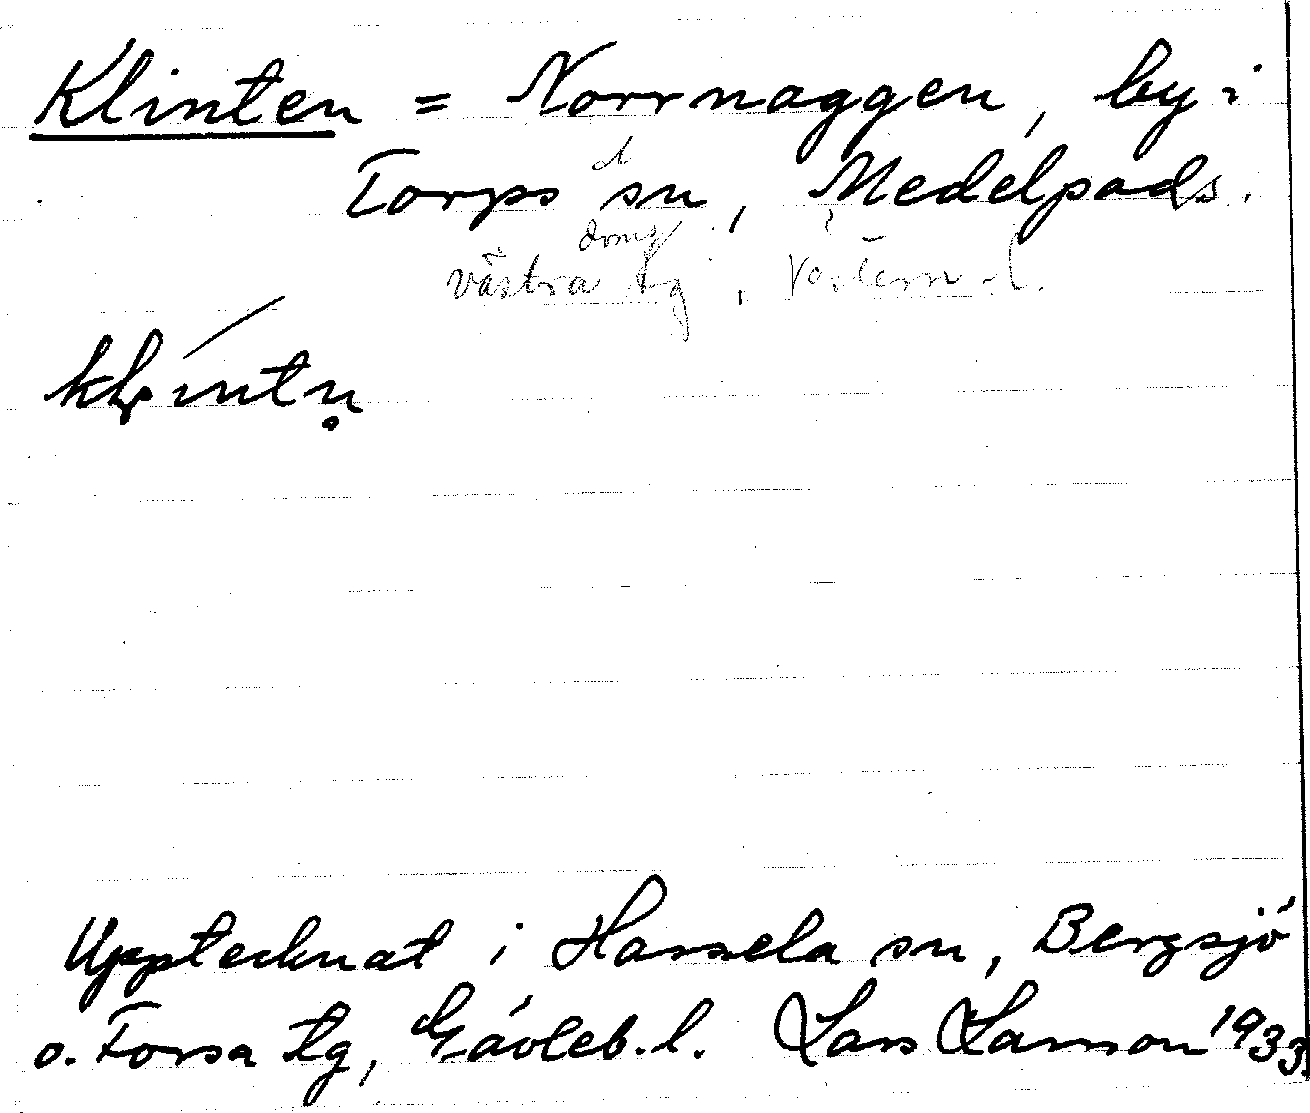 Klinten = Norrnaggen, by i
Torps sn, Medelpads.
västra tg, Västern.l.
Upptecknat i Hassela sn, Bergsjö
o. Forsa tg, Gävleb.l. Lars Larsson 1933.